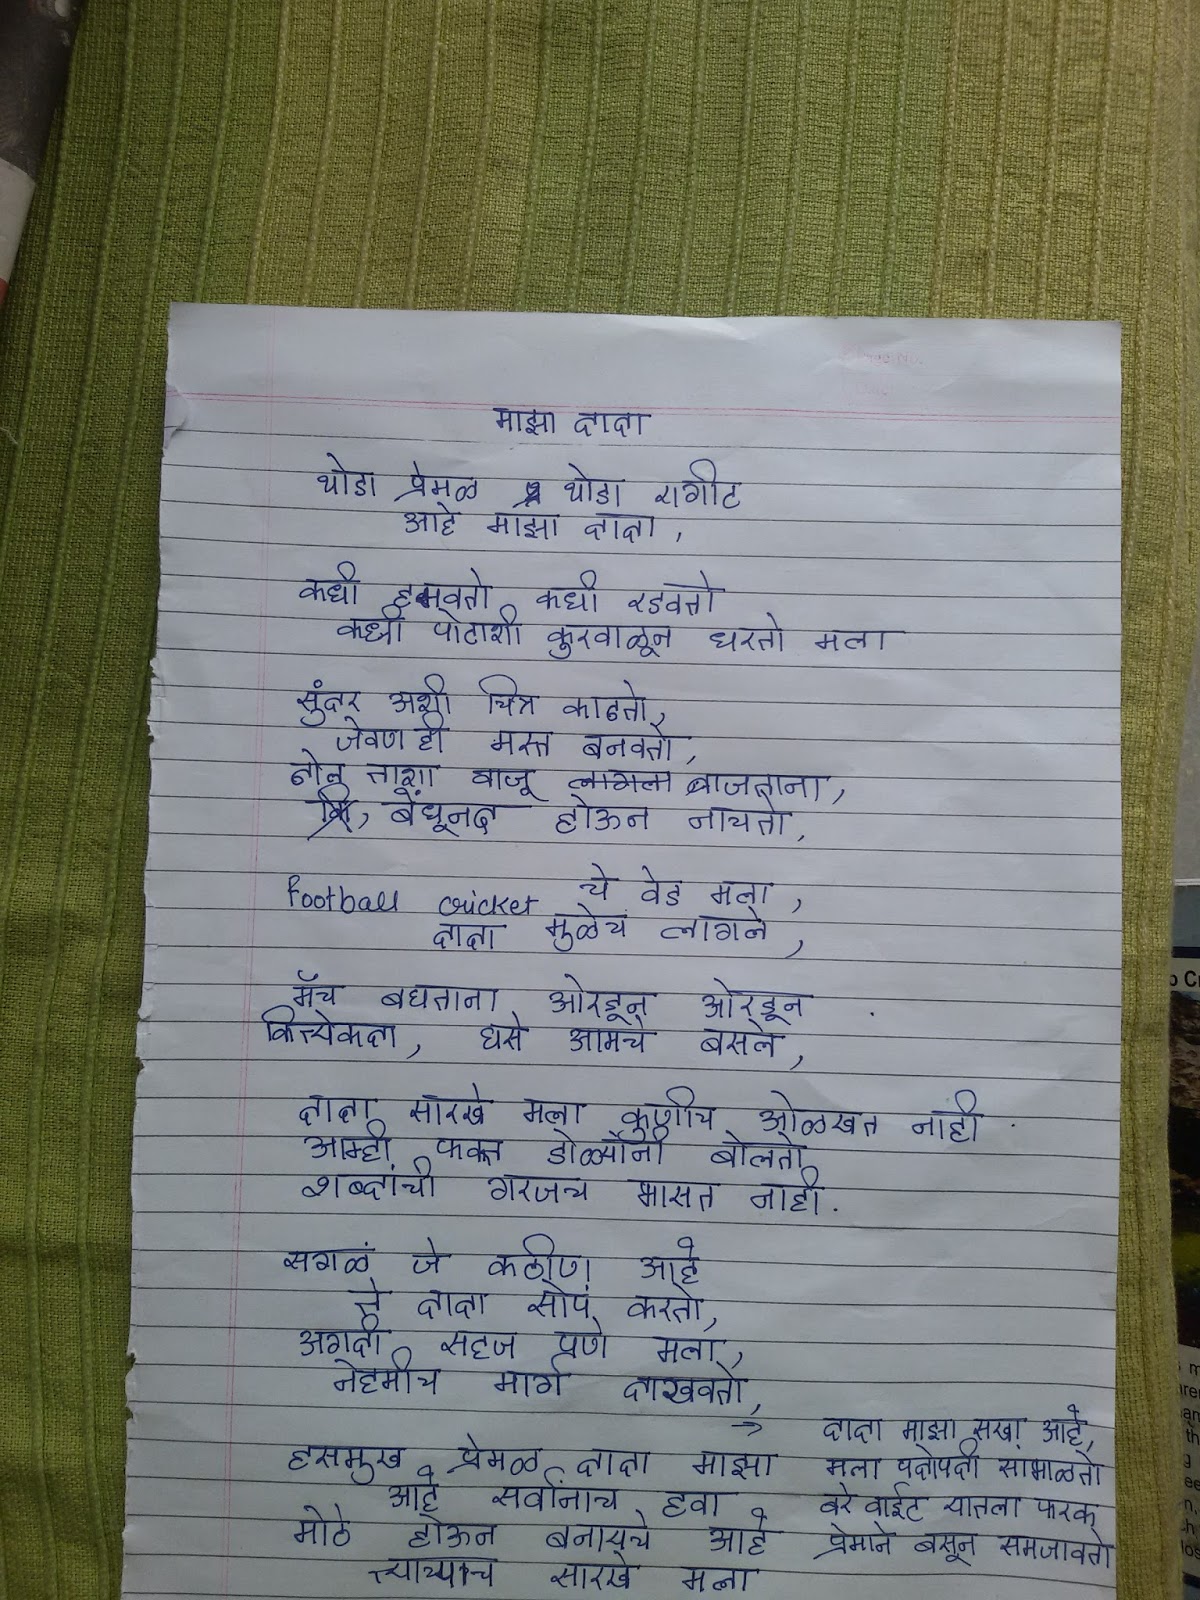 माझा दादा
थोडा प्रेमळ थोडा रागीट
आहे माझा दादा,
कधी हसवतो कधी रडवतो
कधी पोटाशी कुरवाळून धरतो मला
सुंदर अशी चित्र काढतो,
जेवण ही मस्त बनवतो,
ढोल ताशा वाजू लागला वाजताना,
बेधूनद होऊन नाचतो,
football cricket चे वेड मला,
दादा मुळेच लागले,
मॅच बघताना ओरडून ओरडून
कित्येकदा, घसे आमचे बसले,
दादा सारखे मला कुणीच ओळखत नाही.
आम्ही फक्त डोळ्यांनी बोलतो
शब्दांची गरजच भासत नाही.
सगळं जे कठीण आहे
ते दादा सोपं करतो,
अगदी सहज पणे मला,
नेहमीच मार्ग दाखवतो,
→ दादा माझा सखा आहे,
मला पदोपदी सांभाळतो
बरे वाईट यातला फरक
प्रेमाने बसून समजावतो
हसमुख प्रेमळ दादा माझा
आहे सर्वांनाच हवा
मोठे होऊन बनायचे आहे
त्याच्याच सारखे मला